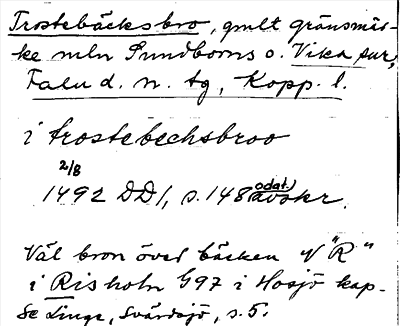 Trostebäcksbro, gmlt gränsmär-
ke mln Sundborns o. Vika snr,
Falu d. n. tg, Kopp. l.
i trostebechsbroo
2/8
1492 DD1, s. 148 odat. avskr.
Väl bron över bäcken N "R"
i Risholn G97 i Hosjö kap-
Se Linge, Svärdsjö, s. 5.